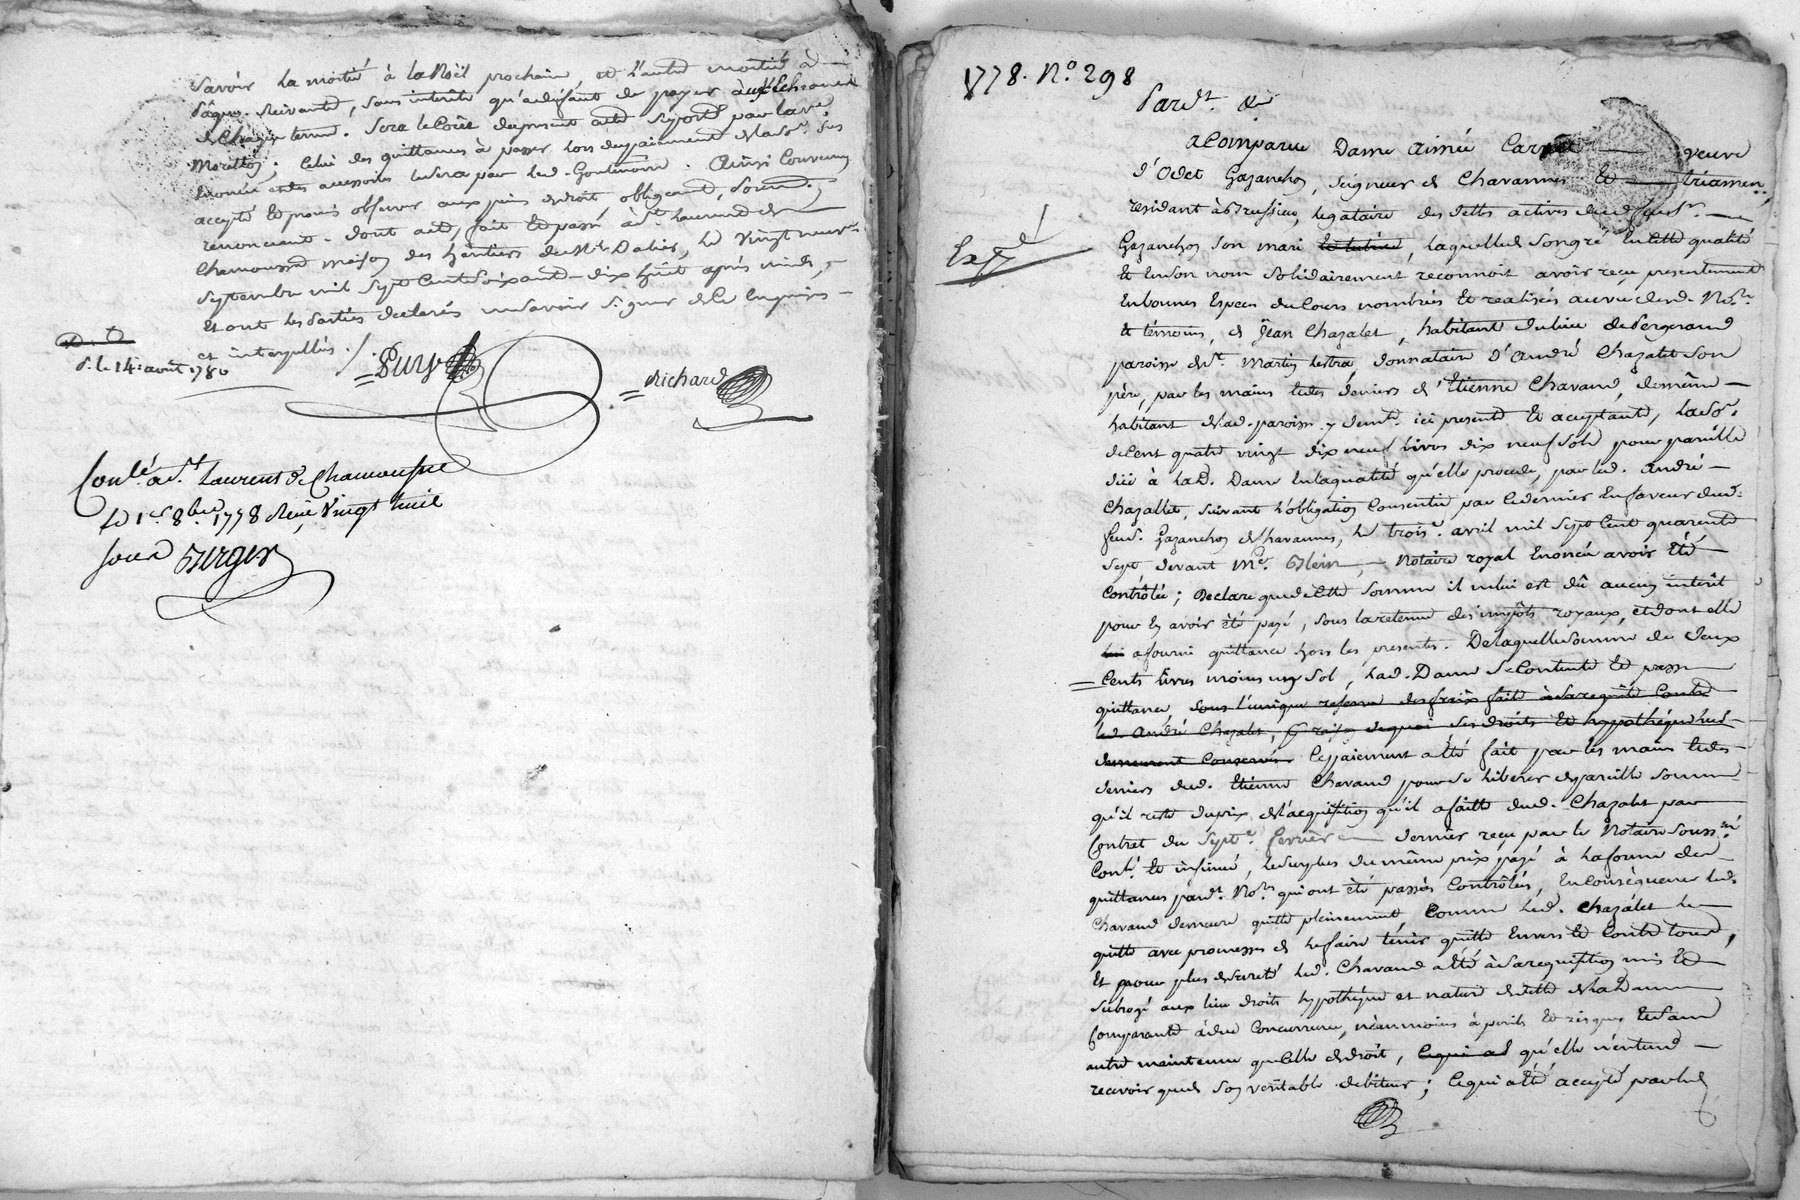 Savoir la moitié à la Noël prochain, et l'autre moitié à
Pâque suivante, sous intérêts qu'a deffaut de payer aux échéances
de chaque terme. Sera le coût du present acte suporté par la ve.
celui des quittances à passer lors du paiement de la so.e sus
énoncée et des accessoires le sera par led. Gontenoire. Ainsi convenu
accepté et promis observer aux peines de droit, obligeant, soumett.
renonceant. Dont acte, fait et passé à St. Laurend de
Chamousset maison des héritiers de Mr. Dalin, le vingt neuf
septembre mil sept cent soixante-dix huit après midi,
Et ont les parties declarés ne savoir signer de ce enquises
et interpellés ./.
D. O
d. le 14: août 1780
= Richard
Conlé. a St. Laurent de Chamousset
le 1er 8bre 1778 Reçu, Vingt huit
sous Burger
1778. No. 298
Pardt. &a
A comparue Dame Aimée veuve
d'Odet Gazanchon, Seigneur de Chavannes et
residant à Brussieu, legataire des dettes actives dud. feu sr.
Gazanchon son mari, laquelle de son gré en cette qualité
et en son nom solidairement reconnoit avoir reçu presentement
en bonnes especes du cours nombrées et realisées au vu desd. No.res
et témoins, de Jean Chazalet, habitant du lieu de Pergeraud
paroisse de St. Martin Lestra, donnataire d'André Chazalet son
père, par les mains et des deniers d'Etienne Chavand, de même
habitant de lad. paroisse y demt. ici presente et acceptante, la so.e
de cent quatre vingt dix neuf livres dix neuf sols pour pareille
düe à lad. Dame en la qualité qu'elle procede, par led. André
Chazallet, suivant l'obligation consentie par ce dernier en faveur dud.
feu sr. Gazanchon de Chavannes, le trois.e avril mil sept cent quarente
sept devant Me. Blein, Notaire royal énoncée avoir été
contrôlée; Declare que de cette somme il ne lui est dû aucun intérêt
pour en avoir été payé, sous la retenue des impôts royaux, et dont elle
a fourni quittance hors les presentes. De laquelle somme de deux
cents livres moins un sol, lad. Dame se contente et passe
quittance sous l'unique reserve des fraix faits à sa requête contre
led. André Chazalet, pour raison de quoi ses droits et hypothéques lui
demeurent conservés le paiement a été fait par les mains et des
deniers dud. Etienne Chavand pour se liberer de pareille somme
qu'il reste du prix de l'acquisition qu'il a faitte dud. Chazalet par
contrat du sept.e fevrier dernier reçu par le Notaire souss.né
Conlé. et insinué, le surplus du même prix payé à la forme des
quittances pardt. No.res qui ont été passées contrôlées, En conséquence led.
Chavand demeure quitte pleinement, comme led. Chazalet le
quitte avec promesses de le faire tenir quitte envers et contre tous,
Et pour plus de sureté led. Chavand a été à sa requisition mis et
subrogé aux lieu droits hypothéque et nature de dette de la Dame
comparante à due concurrence, néanmoins à perils et risques et sans
autre maintenue que celle de droit, ce qui a e qu'elle n'entend
recevoir que de son veritable debiteur; ce qui a été accepté par led